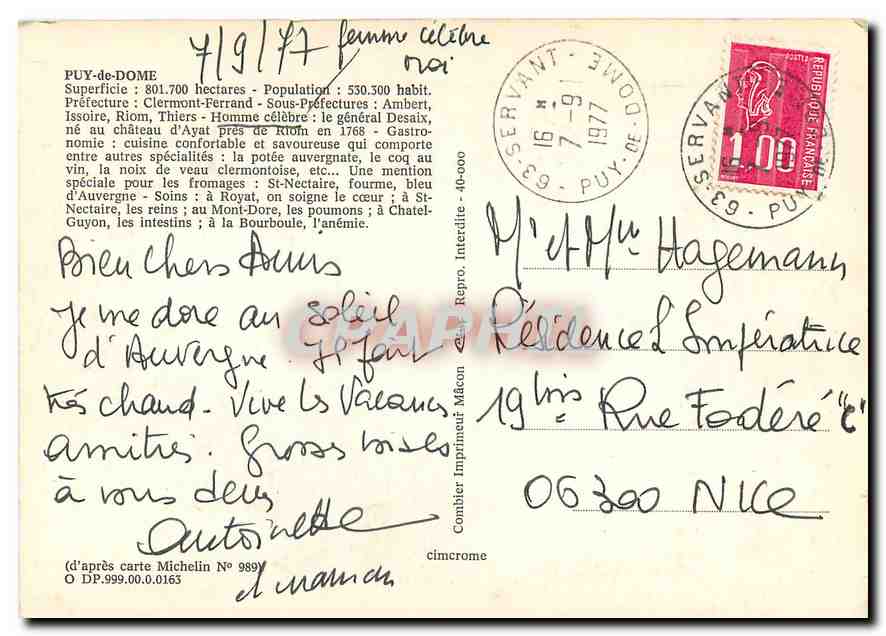 7/9/77 femme célèbre
moi
PUY-de-DOME
Superficie : 801.700 hectares - Population : 530.300 habit.
Préfecture : Clermont-Ferrand - Sous-Préfectures : Ambert,
Issoire, Riom, Thiers - Homme célèbre : le général Desaix,
né au château d'Ayat près de Riom en 1768 - Gastro-
nomie : cuisine confortable et savoureuse qui comporte
entre autres spécialités : la potée auvergnate, le coq au
vin, la noix de veau clermontoise, etc... Une mention
spéciale pour les fromages : St-Nectaire, fourme, bleu
d'Auvergne - Soins : à Royat, on soigne le cœur ; à St-
Nectaire, les reins ; au Mont-Dore, les poumons ; à Chatel-
Guyon, les intestins ; à la Bourboule, l'anémie.
Bien Chers Amis
Je me dore au soleil
d'Auvergne. Il fait
très chaud. Vive les Vacances
amitiés. Grosses bises
à vous deux
Antoinette
et maman
(d'après carte Michelin N° 989)
O DP.999.00.0.0163
cimcrome
Combier Imprimeur Mâcon Repro. Interdite - 40-000
CPAPHIL
63-SERVANT - PUY-DE-DOME
16 H
7 - 9
1977
RÉPUBLIQUE FRANÇAISE
POSTES
1.00
63-SERVANT
PUY-DE
Mr et Mme Hagemann
Résidence L'Impératrice
19 bis Rue Fodéré "C"
06300 NICE